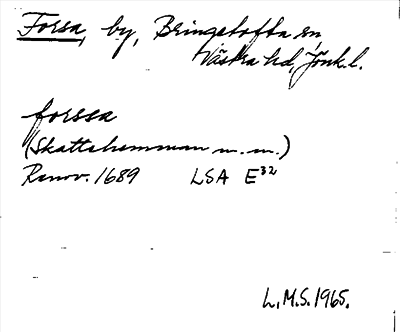 Forsa, by, Bringetofta sn,
Västra hd, Jönk.l.
forssa
(Skattehemman m.m.)
Renov. 1689 LSA E³²
L.M.S. 1965.